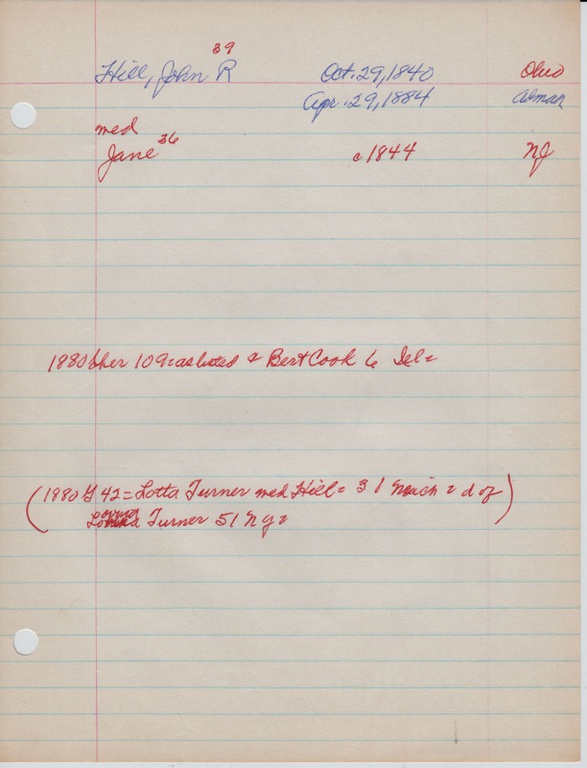 39
Hill, John R Oct. 29, 1840 Ohio
Apr. 29, 1884
med
Jane 36 c 1844 NJ
1880 Cher 109 = as listed & Bert Cook 6 Del =
(1880 G 42 = Lotta Turner med Hill = 31 Mich = d of
Turner 51 NY =)